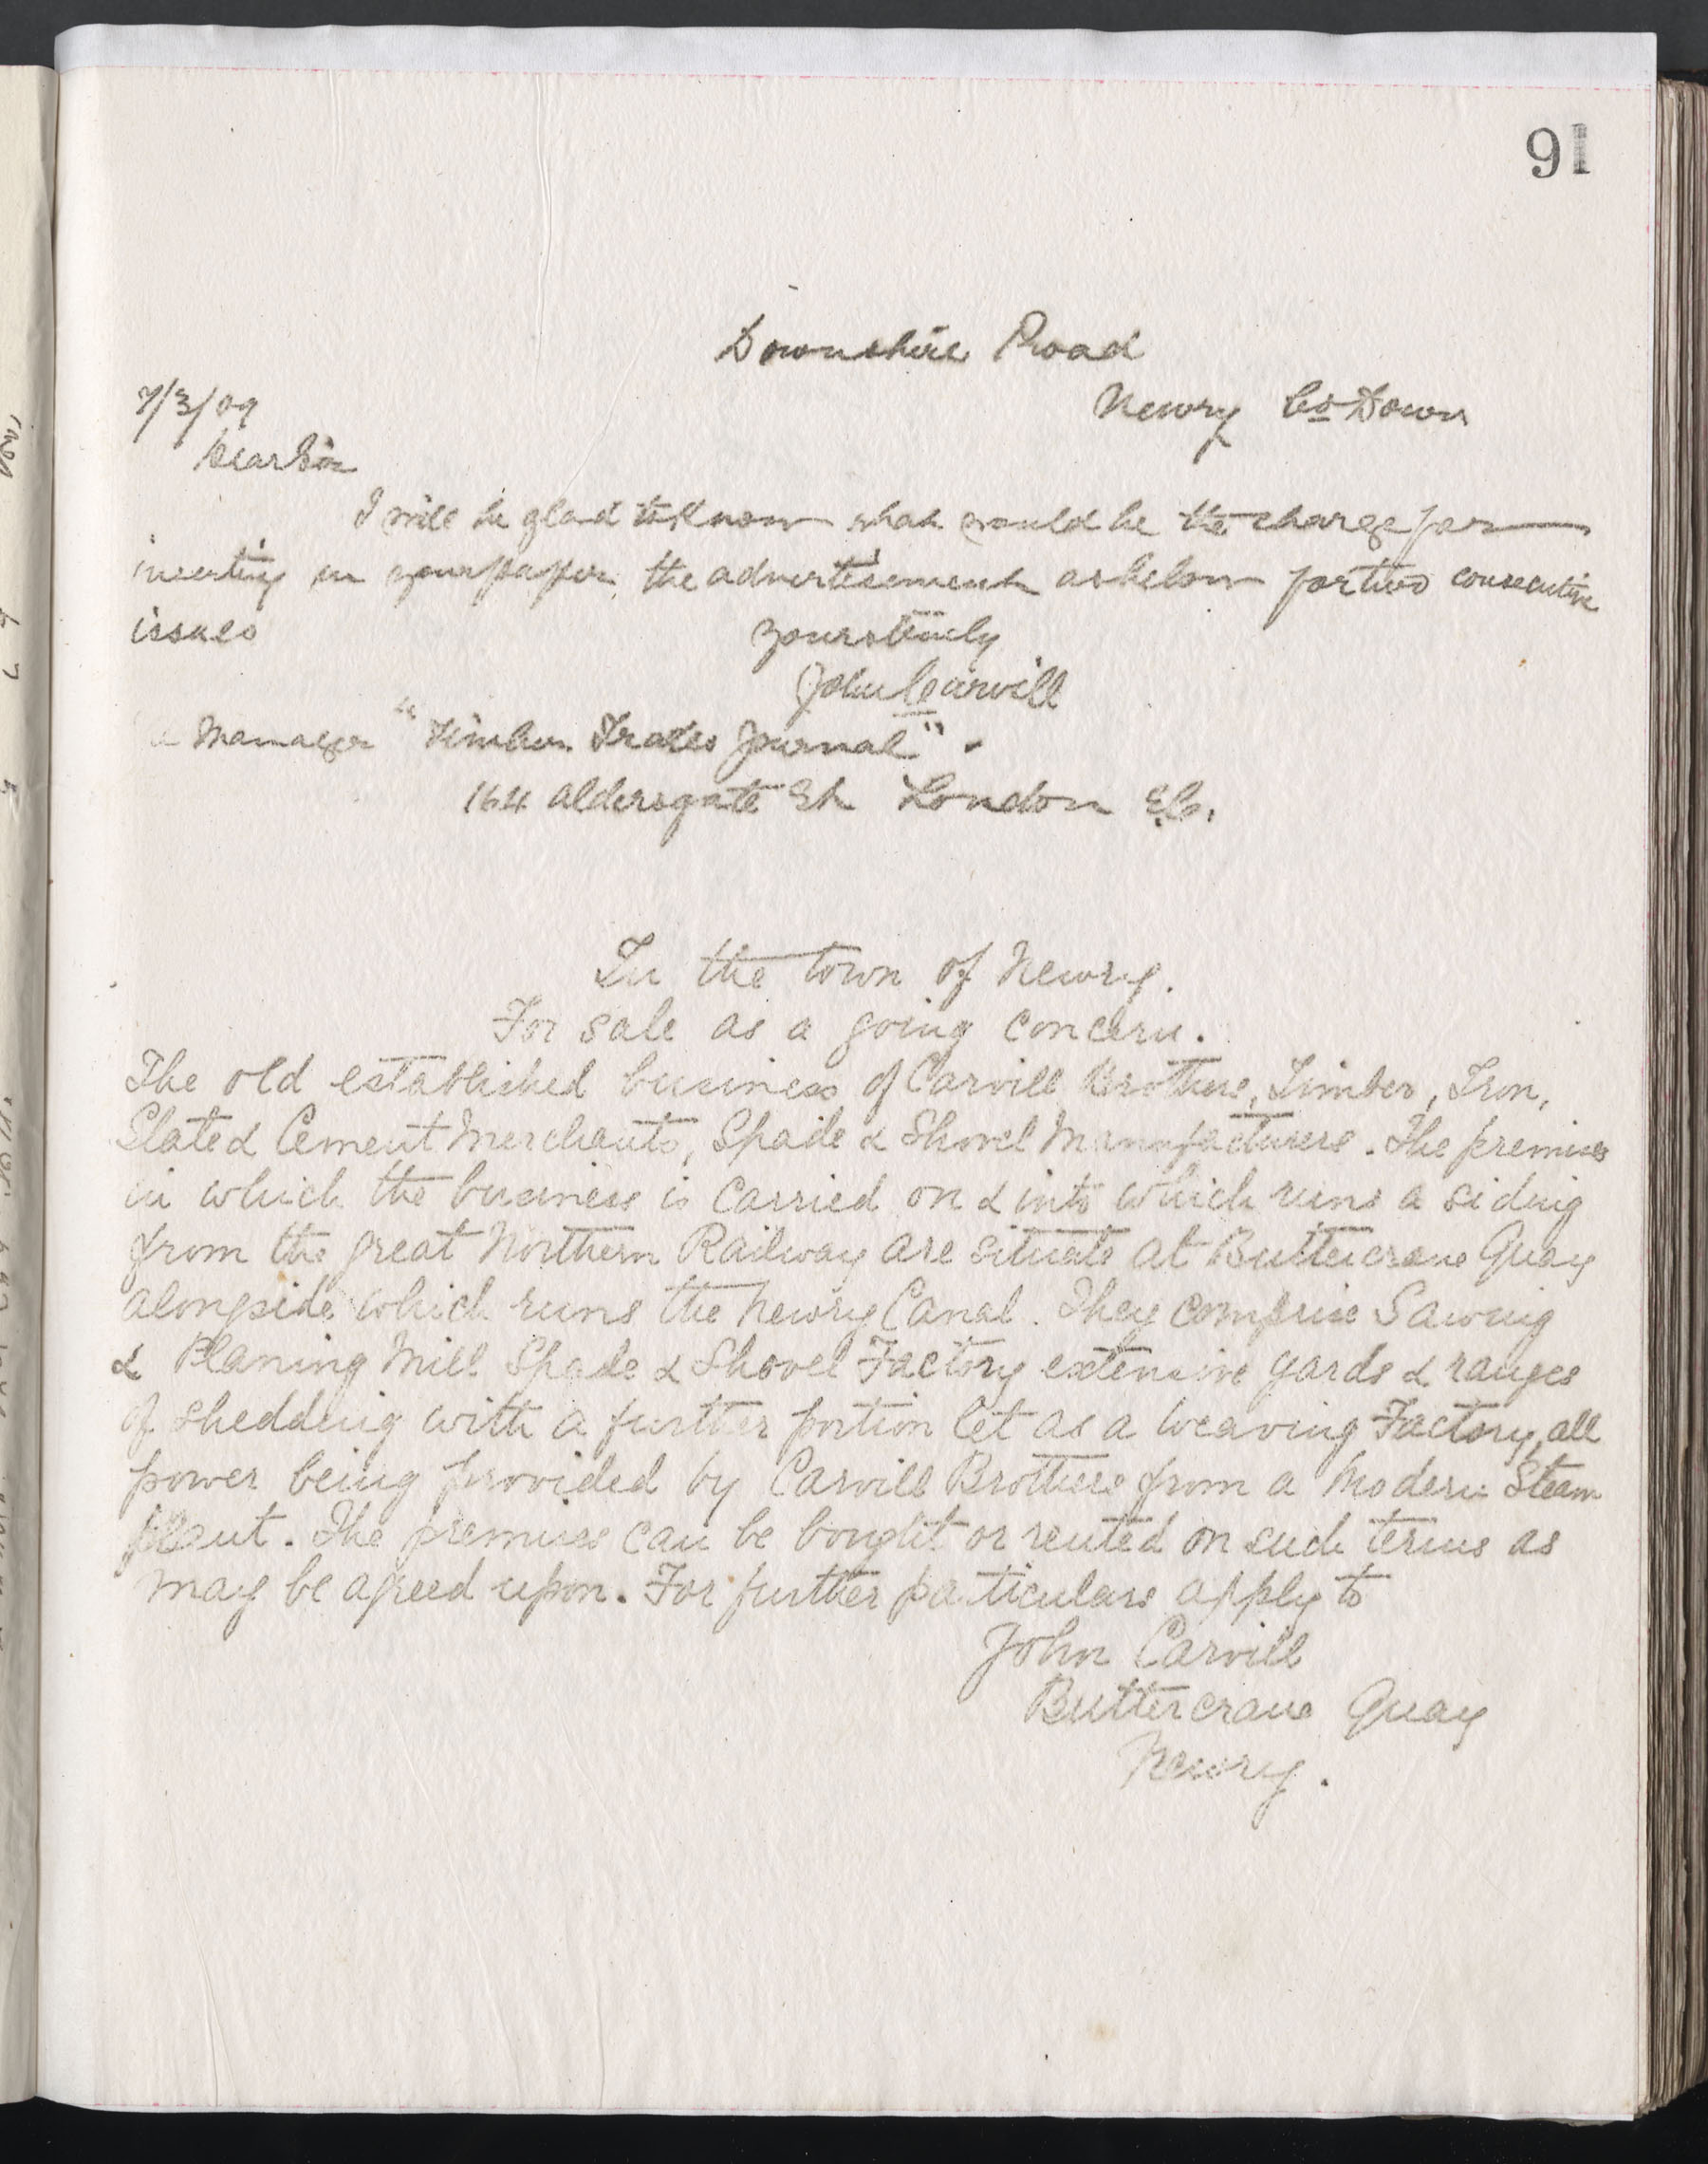 91
Downshire Road
7/3/09
Newry Co Down
Dear Sir
I will be glad to know what would be the charge for
inserting in your paper the advertisement as below for two consecutive
issues
Yours truly
John Carvill
Manager "Timber Trades Journal".
164 Aldersgate St London E.C.
In the town of Newry.
For sale as a going concern.
The old established business of Carvill Brothers, Timber, Iron,
Slate & Cement Merchants, Spade & Shovel Manufacturers. The premises
in which the business is carried on & into which runs a siding
from the great Northern Railway are situate at Buttercrane Quay
alongside which runs the Newry Canal. They comprise Sawing
& Planing Mill Spade & Shovel Factory extensive yards & ranges
of shedding with a further portion let as a weaving Factory, all
power being provided by Carvill Brothers from a Modern Steam
plant. The premises can be bought or rented on such terms as
may be agreed upon. For further particulars apply to
John Carvill
Buttercrane Quay
Newry.